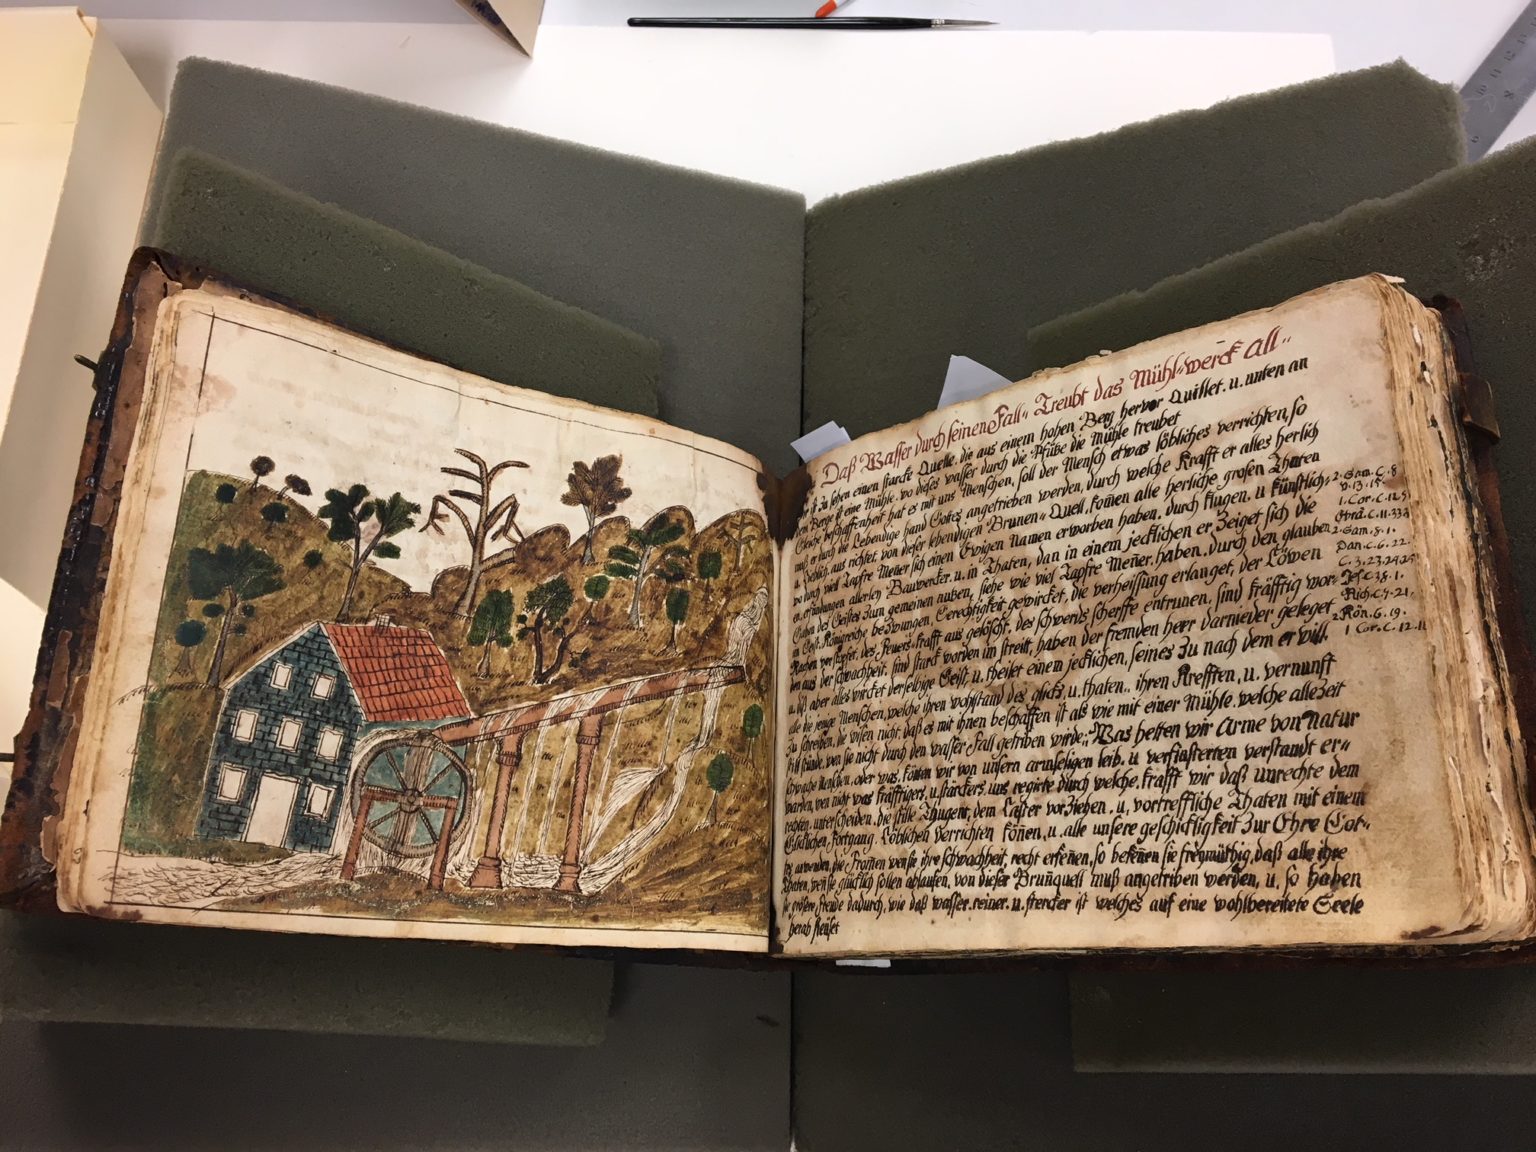 Daß Wasser durch seinen Fall" Treubt das Mühl-werck all"
ist zu sehen einen starcke Quelle, die aus einem hohen Berg hervor Quillet. u. unten an
Berge ist eine Mühle. wo dieses wasser durch die die Mühle treubet
Gleiche beschaffenheit hat es mit uns Menschen, soll der Mensch etwas löbliches verrichten, so
muß er durch die Lebendige hand Gottes angetrieben werden, durch welche Krafft er alles herlich
u. löblich, aus richtet, von dieser lebendigen Brunen" Quell, kom̄en alle herliche großen Thaten
wo durch viel Tapfre Mener sich einen Ewigen Namen erworben haben, durch klugen, u künstlich"
en, erfindungen allerley Bauwercker u. in Thaten, dan in einem jecklichen er Zeiget sich die
Gaben des Geistes zum gemeinen nutzen, siehe wie viel Tapfre Mener, haben, durch den glauben
im Geist, Königreiche bezwungen, Gerechtigkeit gewircket, die verheissung erlanget, der Löwen
Rachen verstopfet, des feuers krafft aus gelöscht, des schwerds scherffe entrunen, sind kräfftig wor-
den aus der schwachheit, sind starck worden im streitt, haben der fremden heer darnieder geleget
u. diß aber alles wircket derselbige Geist u. theilet einem jecklichen, seines zu nach dem er will.
alle die jenige Menschen, welche ihren wohlstand des glücks, u. thaten, ihren Krefften, u. vernunft
zu schreiben, die wisen nicht daß es mit ihnen beschaffen ist als wie mit einer Mühle, welche allezeit
still stünde, wen sie nicht durch den wasser fall getriben wirde; Was hetten wir Arme von Natur
schwache Menschen, oder was, könten wir von unsern armseligen leib, u. verfinsterten verstandt er"
warden, wen nicht was kräfftigers, u. stärckers, uns regirte durch welche, krafft wir daß unrechte dem
rechten, unterscheiden, die stille Thugent, dem Laster vor ziehen, u, vortreffliche Thaten mit einem
Glücklichen, fortgang, Löblichen verrichten kön̄en, u. alle unsere geschickligkeit zur Ehre Got"
tes anwenden, die Fromen wen sie ihre schwachheit, recht erken̄en, so beken̄en sie freymüthig, daß alle ihre
thaten, wen sie glücklich sollen ablaufen, von dieser Brun̄quell muß angetriben werden, u, so haben
sie größere freude dadurch, wie daß wasser, reiner, u. stercker ist welches auf eine wohlbereitete Seele
herab fleüset
2. Sam. C. 8
v. 13. 15.
1. Cor. C. 12.
C. 11. 33
2. Sam. 8. 1.
Dan. C. 6. 22.
C. 3. 23. 24. 25
Jes. C. 38. 1.
Rich. C. 7. 21.
2 Kön. 6. 19.
1 Cor. C. 12. 11